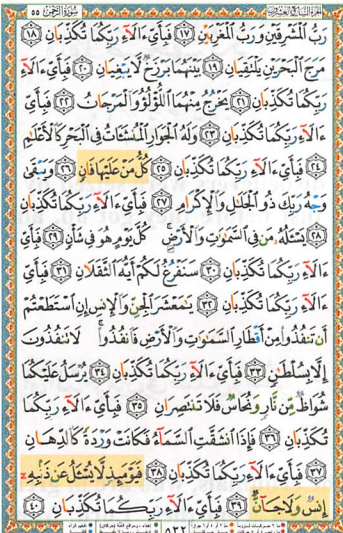 الجزء السابع والعشرون ٥٥ سورة الرحمن
رَبُّ الْمَشْرِقَيْنِ وَرَبُّ الْمَغْرِبَيْنِ ١٧ فَبِأَيِّ ءَالَآءِ رَبِّكُمَا تُكَذِّبَانِ ١٨
مَرَجَ الْبَحْرَيْنِ يَلْتَقِيَانِ ١٩ بَيْنَهُمَا بَرْزَخٌ لَّا يَبْغِيَانِ ٢٠ فَبِأَيِّ ءَالَآءِ
رَبِّكُمَا تُكَذِّبَانِ ٢١ يَخْرُجُ مِنْهُمَا اللُّؤْلُؤُ وَالْمَرْجَانُ ٢٢ فَبِأَيِّ
ءَالَآءِ رَبِّكُمَا تُكَذِّبَانِ ٢٣ وَلَهُ الْجَوَارِ الْمُنشَئَاتُ فِي الْبَحْرِ كَالْأَعْلَٰمِ
٢٤ فَبِأَيِّ ءَالَآءِ رَبِّكُمَا تُكَذِّبَانِ ٢٥ كُلُّ مَنْ عَلَيْهَا فَانٍ ٢٦ وَيَبْقَىٰ
وَجْهُ رَبِّكَ ذُو الْجَلَٰلِ وَالْإِكْرَامِ ٢٧ فَبِأَيِّ ءَالَآءِ رَبِّكُمَا تُكَذِّبَانِ
٢٨ يَسْـَٔلُهُۥ مَن فِي السَّمَٰوَٰتِ وَالْأَرْضِ ۚ كُلَّ يَوْمٍ هُوَ فِي شَأْنٍ ٢٩ فَبِأَيِّ
ءَالَآءِ رَبِّكُمَا تُكَذِّبَانِ ٣٠ سَنَفْرُغُ لَكُمْ أَيُّهَ الثَّقَلَانِ ٣١ فَبِأَيِّ
ءَالَآءِ رَبِّكُمَا تُكَذِّبَانِ ٣٢ يَٰمَعْشَرَ الْجِنِّ وَالْإِنسِ إِنِ اسْتَطَعْتُمْ
أَن تَنفُذُوا مِنْ أَقْطَارِ السَّمَٰوَٰتِ وَالْأَرْضِ فَانفُذُوا ۚ لَا تَنفُذُونَ
إِلَّا بِسُلْطَٰنٍ ٣٣ فَبِأَيِّ ءَالَآءِ رَبِّكُمَا تُكَذِّبَانِ ٣٤ يُرْسَلُ عَلَيْكُمَا
شُوَاظٌ مِّن نَّارٍ وَنُحَاسٌ فَلَا تَنتَصِرَانِ ٣٥ فَبِأَيِّ ءَالَآءِ رَبِّكُمَا
تُكَذِّبَانِ ٣٦ فَإِذَا انشَقَّتِ السَّمَآءُ فَكَانَتْ وَرْدَةً كَالدِّهَانِ
٣٧ فَبِأَيِّ ءَالَآءِ رَبِّكُمَا تُكَذِّبَانِ ٣٨ فَيَوْمَئِذٍ لَّا يُسْـَٔلُ عَن ذَنۢبِهِۦٓ
إِنسٌ وَلَا جَآنٌّ ٣٩ فَبِأَيِّ ءَالَآءِ رَبِّكُمَا تُكَذِّبَانِ ٤٠
٥٣٢